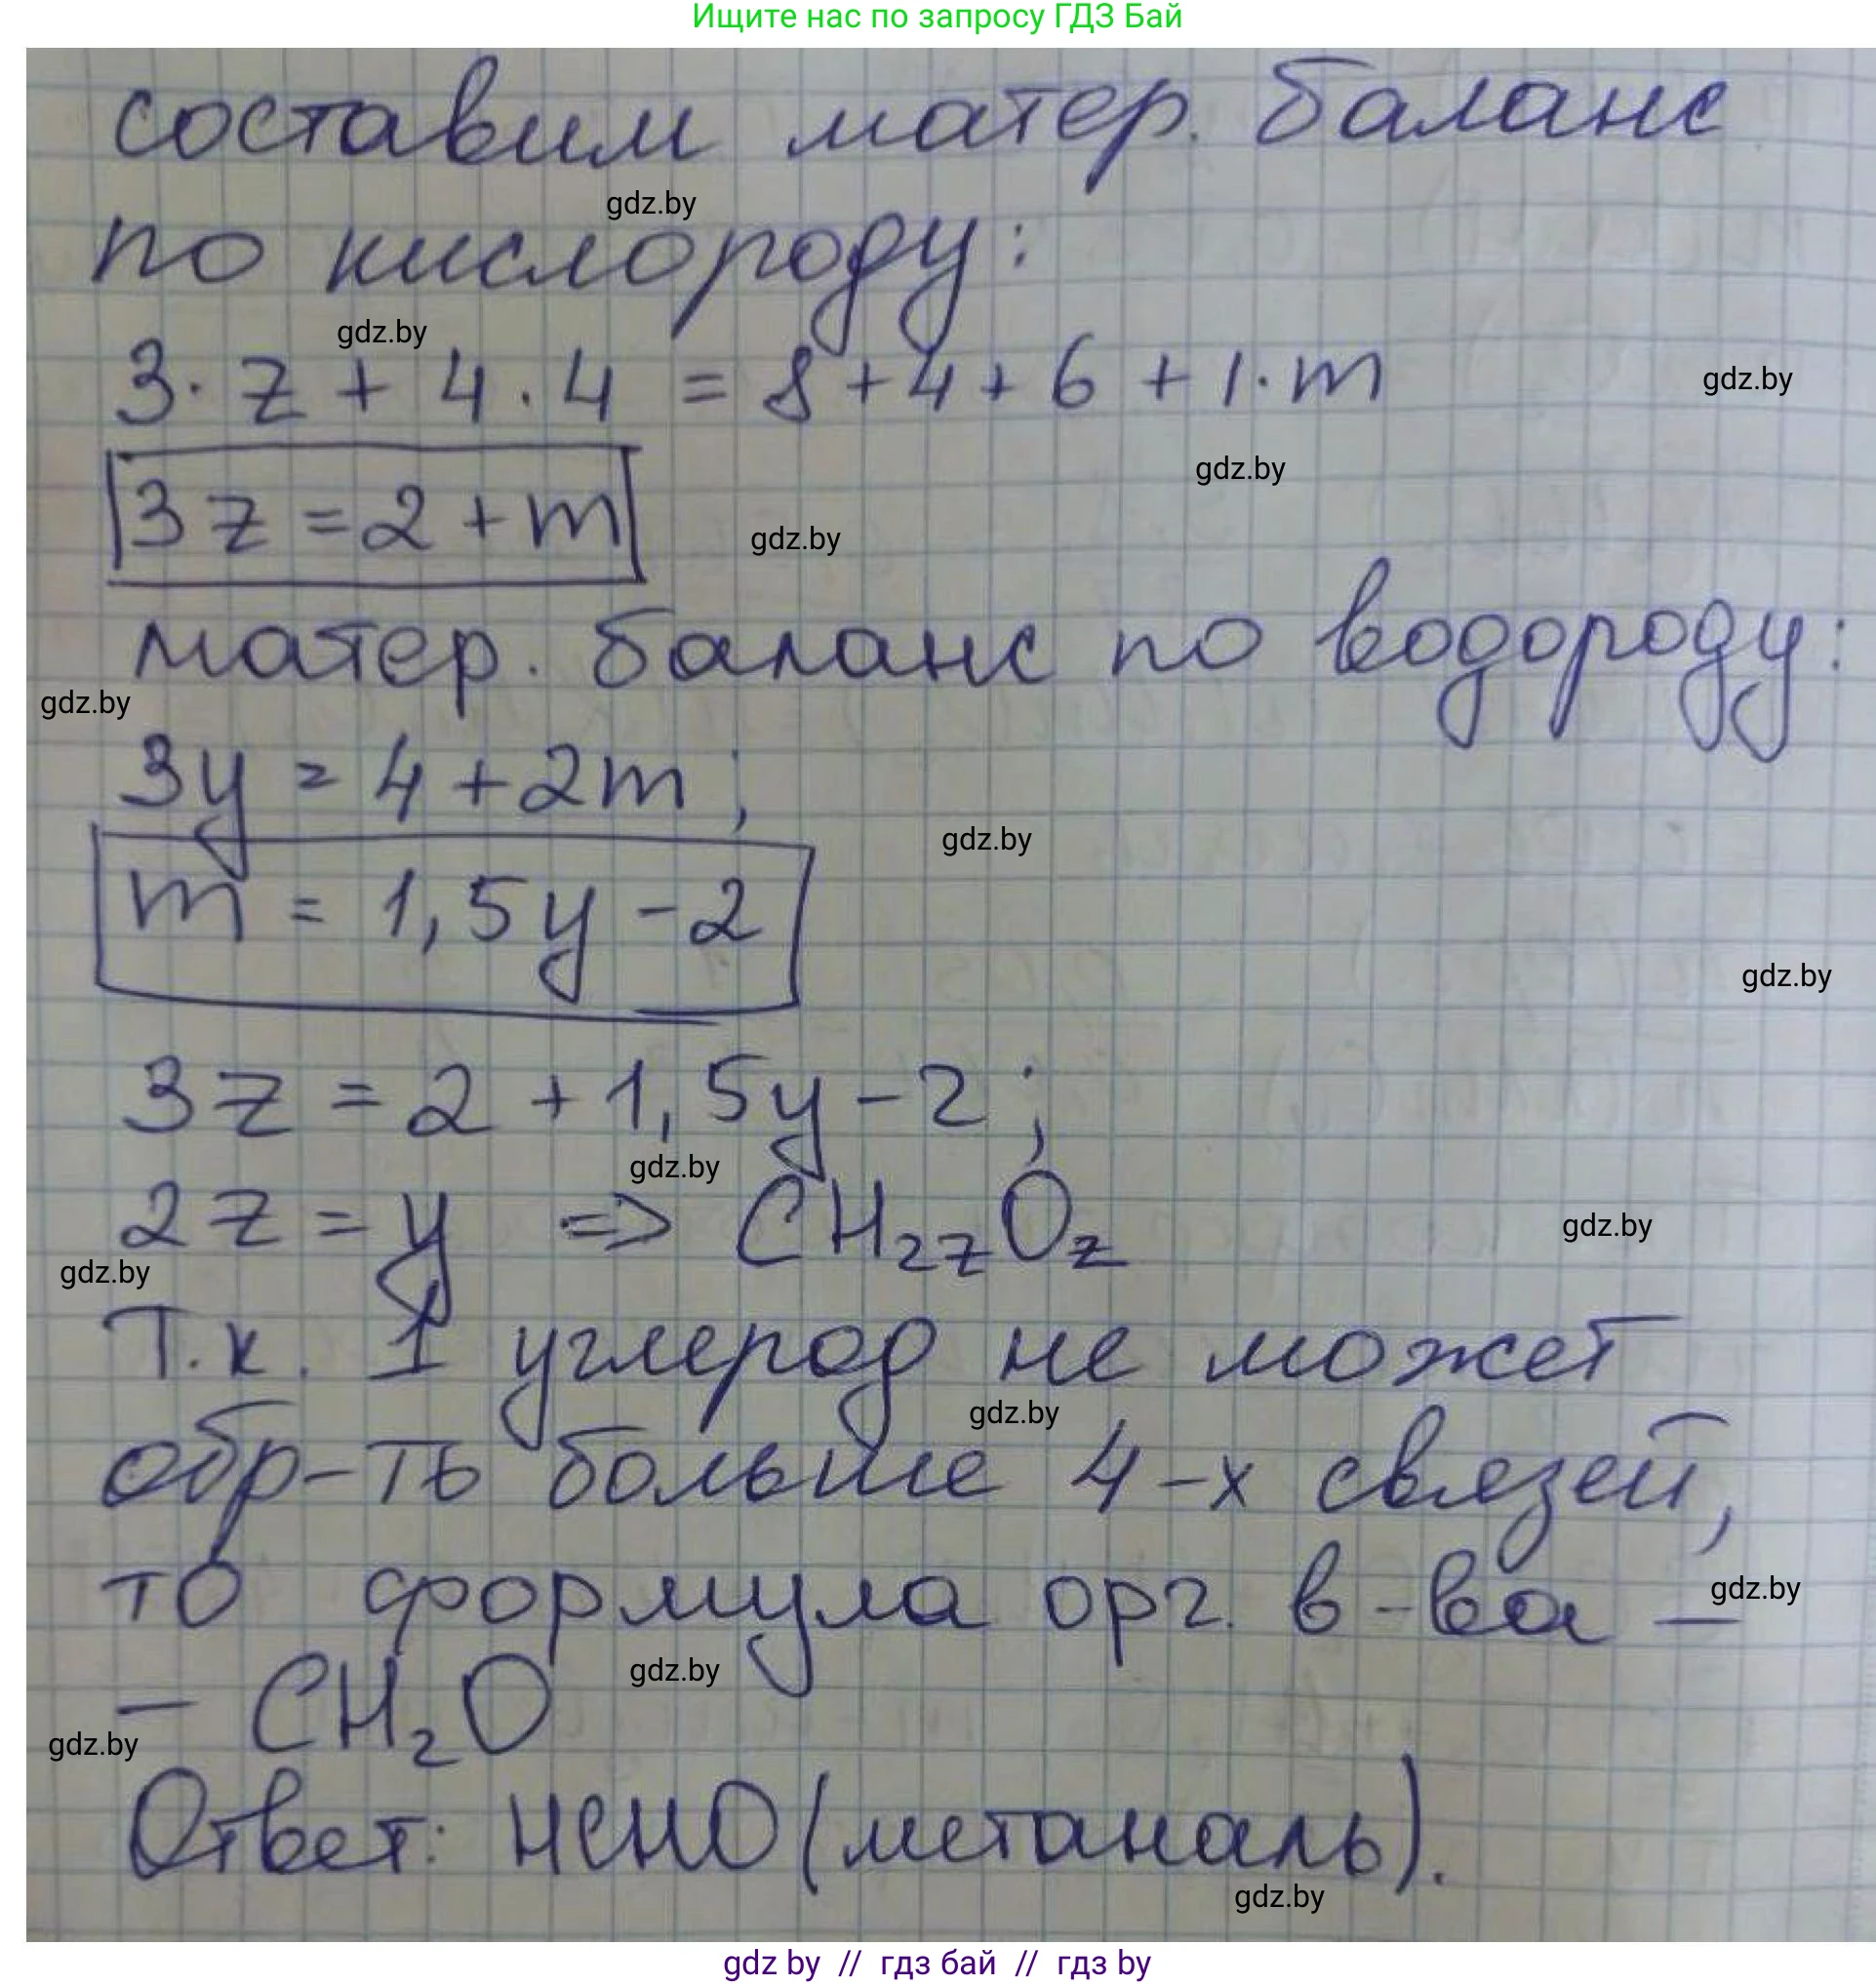 Ищите нас по запросу ГДЗ Бай
составим матер. баланс
gdz.by
по кислороду:
gdz.by
3· z + 4 · 4 = 8 + 4 + 6 + 1· m
gdz.by
gdz.by
3 z = 2 + m
gdz.by
матер. баланс по водороду:
gdz.by
3y = 4 + 2m ;
gdz.by
m = 1,5y - 2
gdz.by
3z = 2 + 1,5y - 2 ;
gdz.by
2z = y => CH₂zOz
gdz.by
gdz.by
Т.к. 1 углерод не может
gdz.by
обр-ть больше 4-х связей,
то формула орг. в-ва –
gdz.by
gdz.by
– CH₂O
gdz.by
Ответ: HCHO (метаналь).
gdz.by
gdz by // гдз бай // гдз by